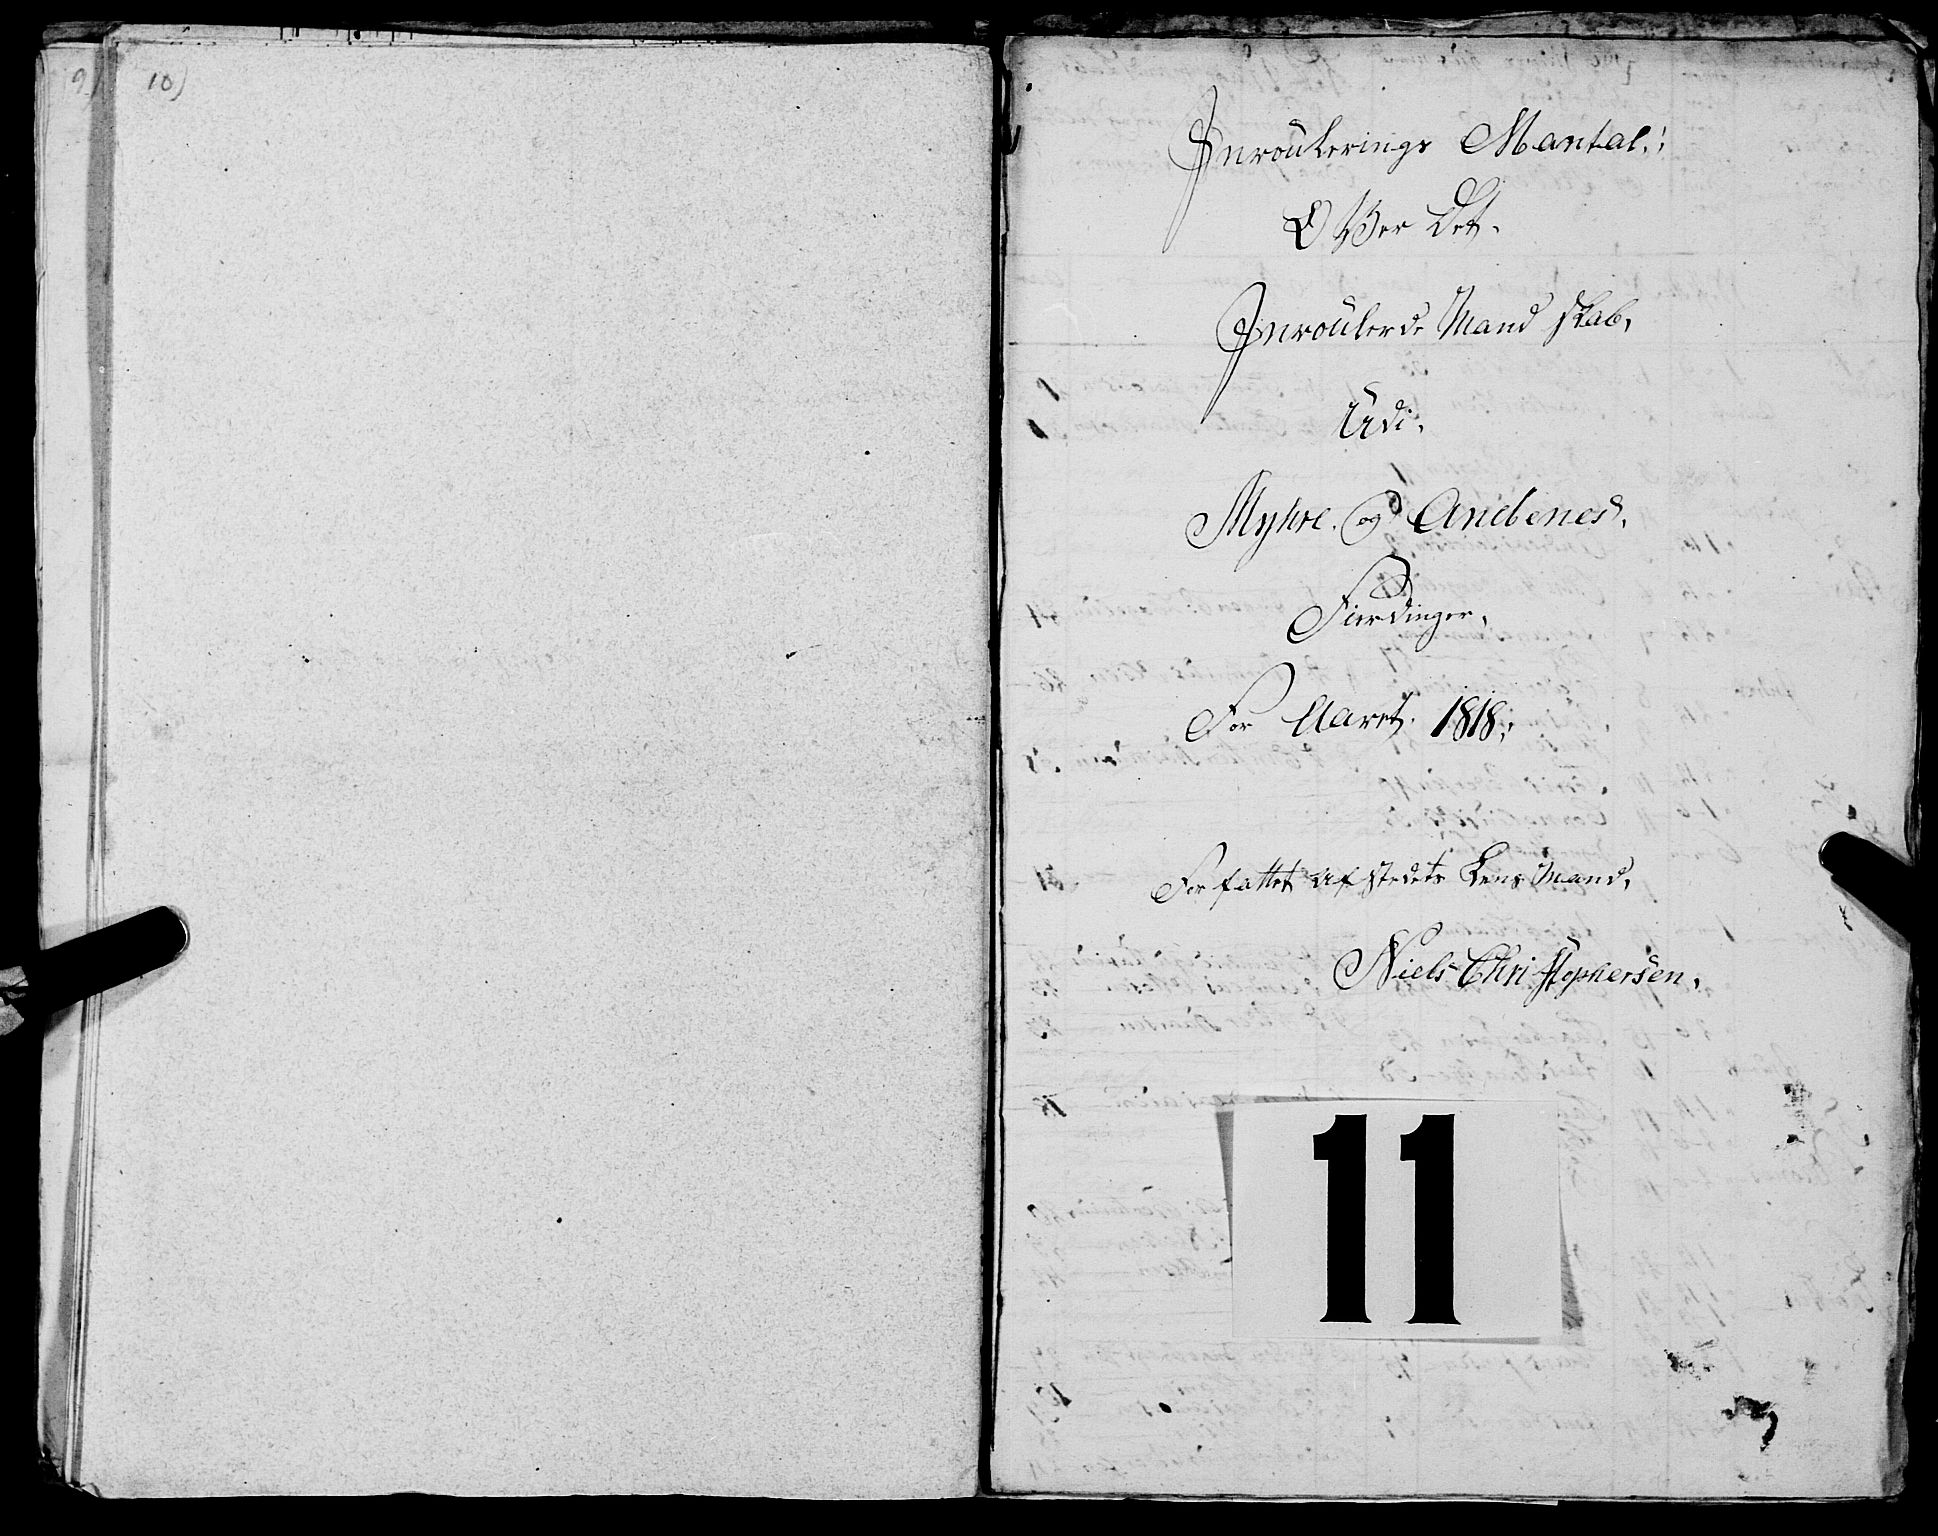 9)
10)
Inroulerings Mantal:
OVer Det.
Inroulerde Mand skab,
Udi.
Myhre. og Andenes,
Fierdinger,
For Aaret. 1818,
For fattet af stedets Lens Mand,
Niels Christophersen,
11